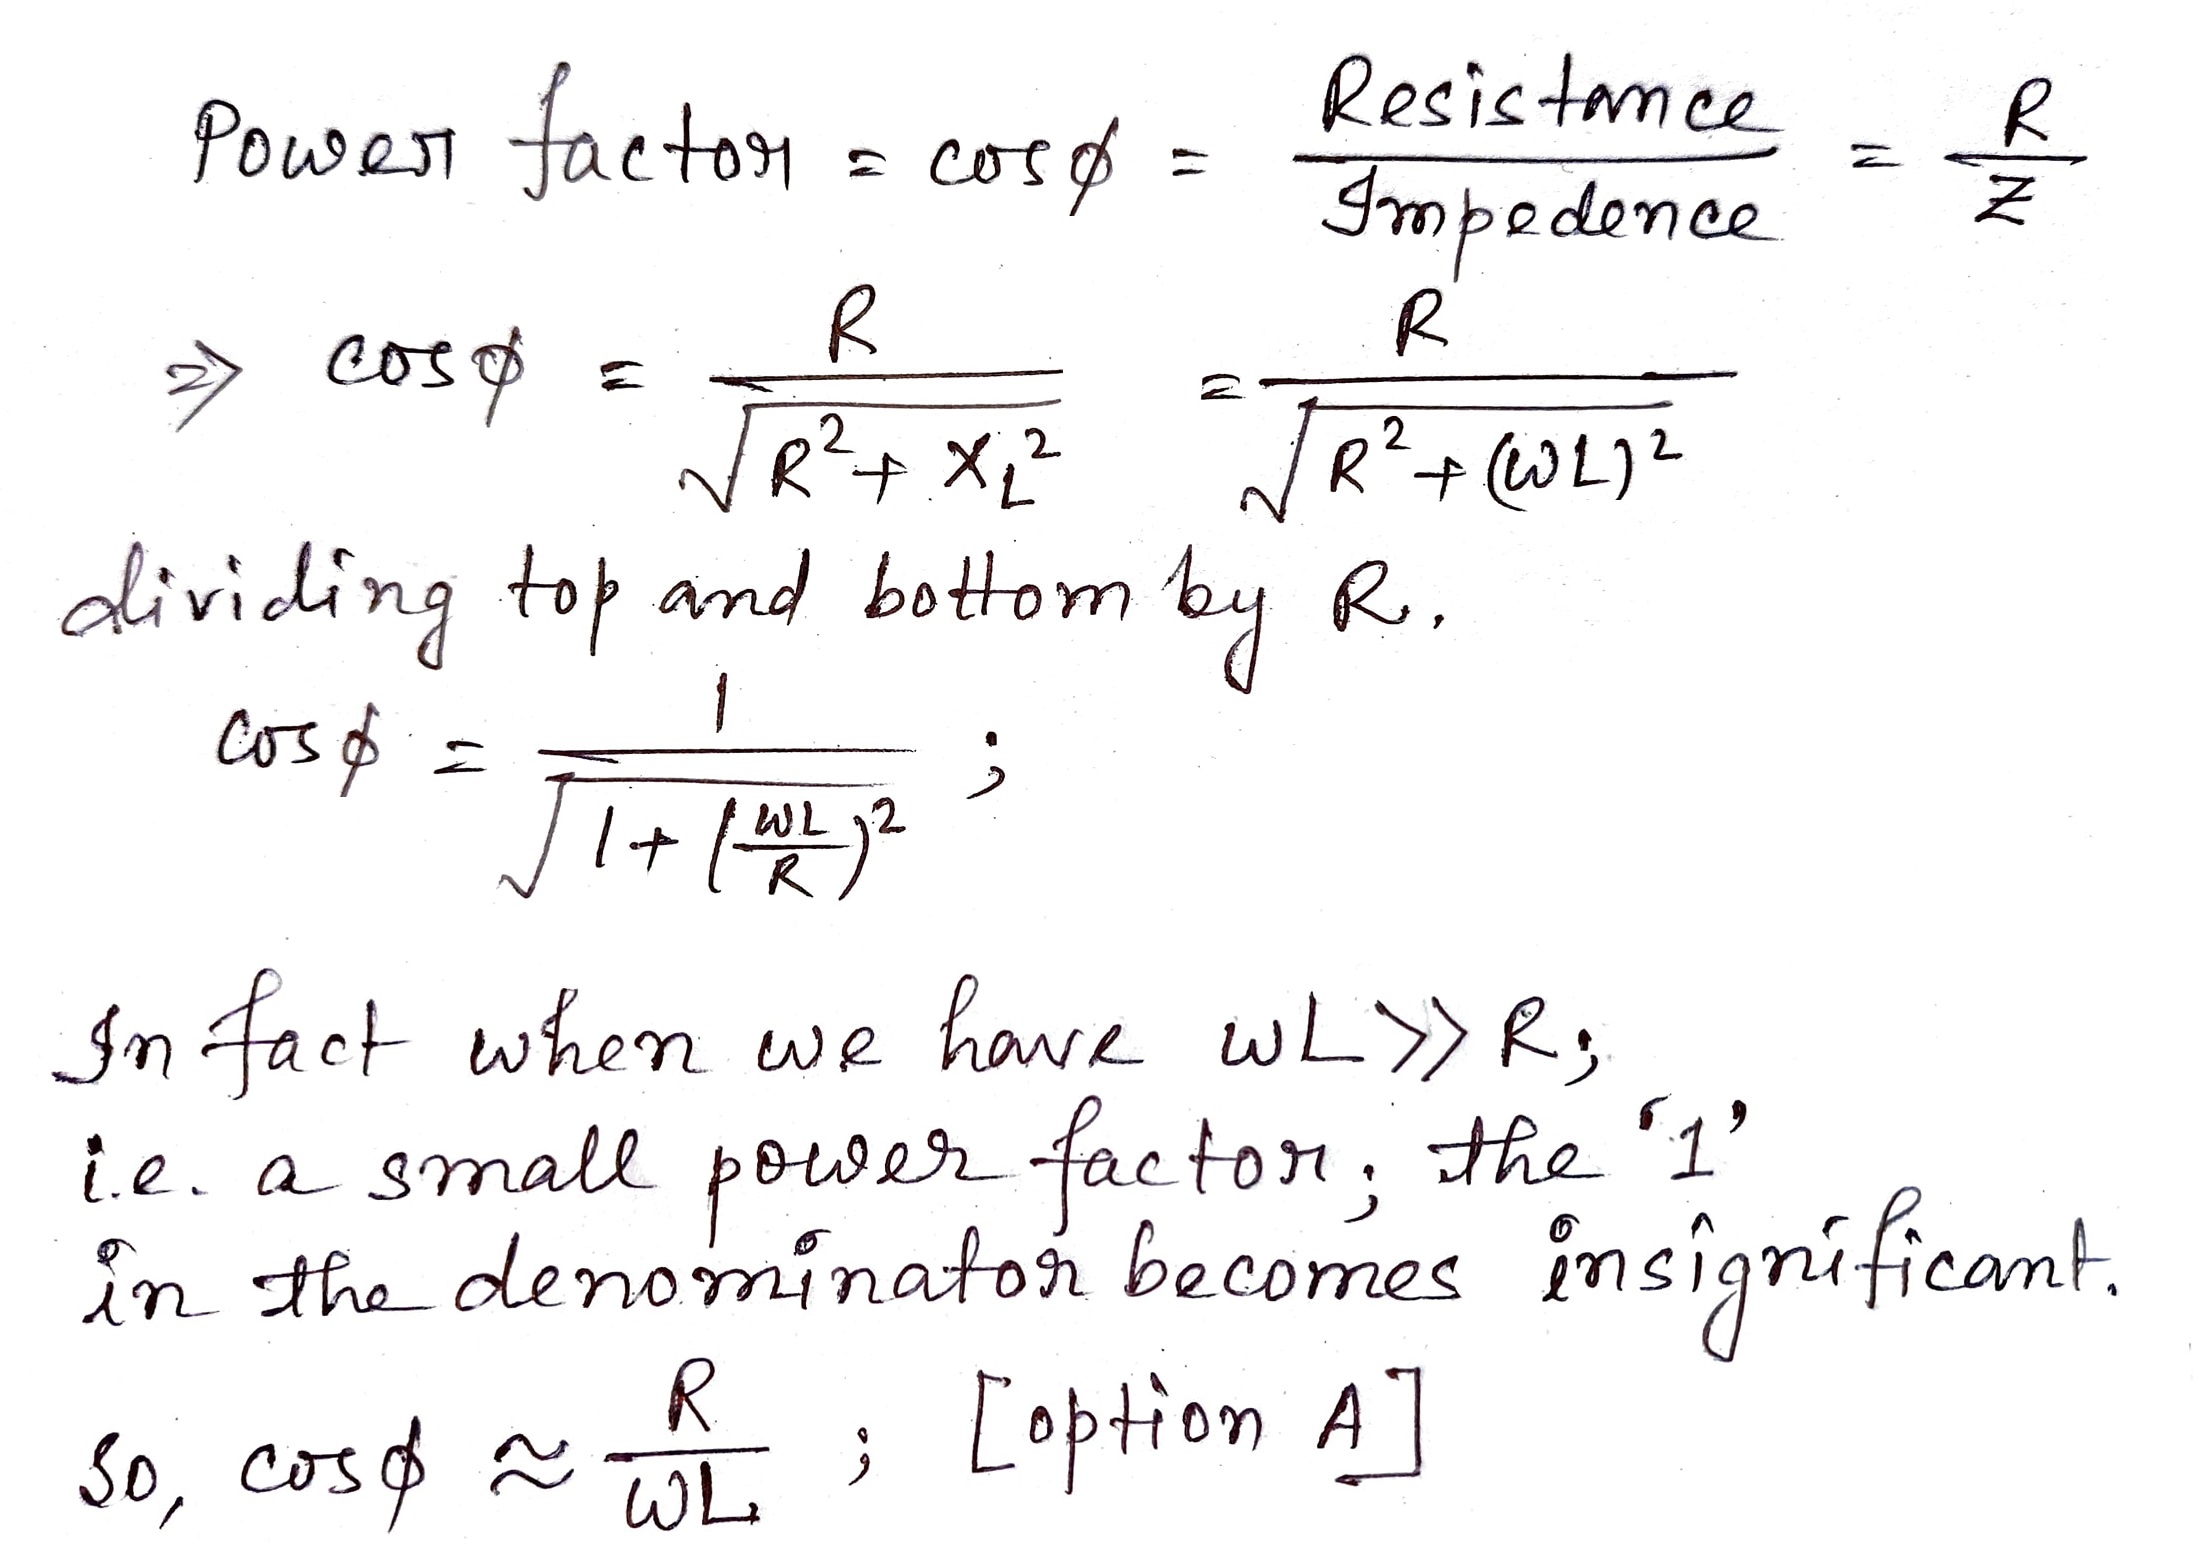 Power factor = cosϕ = Resistance / Impedence = R / Z
⇒ cosϕ = R / √(R² + X_L²) = R / √(R² + (ωL)²)
dividing top and bottom by R.
cosϕ = 1 / √(1 + (ωL/R)²) ;
In fact when we have ωL >> R;
i.e. a small power factor; the '1'
in the denominator becomes insignificant.
So, cosϕ ≈ R / ωL ; [option A]